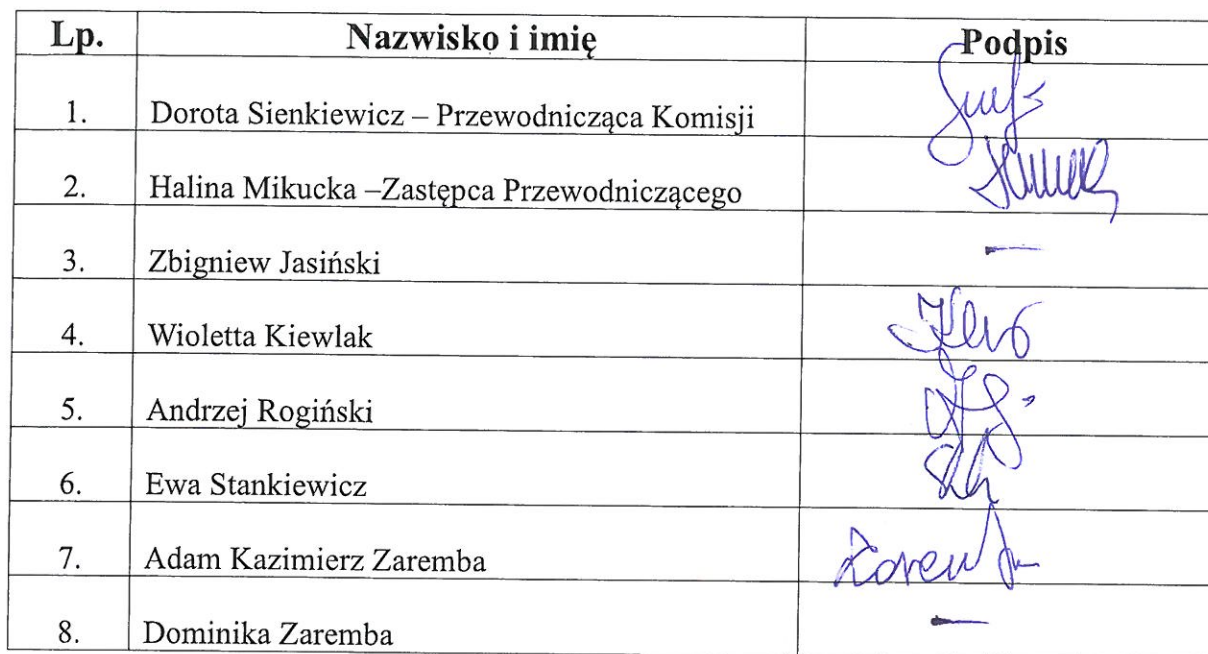 Lp. Nazwisko i imię Podpis
1. Dorota Sienkiewicz – Przewodnicząca Komisji
2. Halina Mikucka –Zastępca Przewodniczącego
3. Zbigniew Jasiński —
4. Wioletta Kiewlak
5. Andrzej Rogiński
6. Ewa Stankiewicz
7. Adam Kazimierz Zaremba
8. Dominika Zaremba —